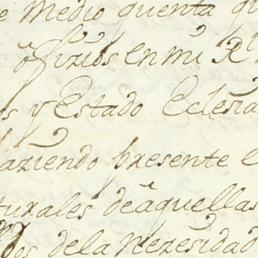 e medio quenta q
ofizios en mi Rl
s y Estado Eclesia
aziendo presente e
turales de aquellas
dos de la nezesidad